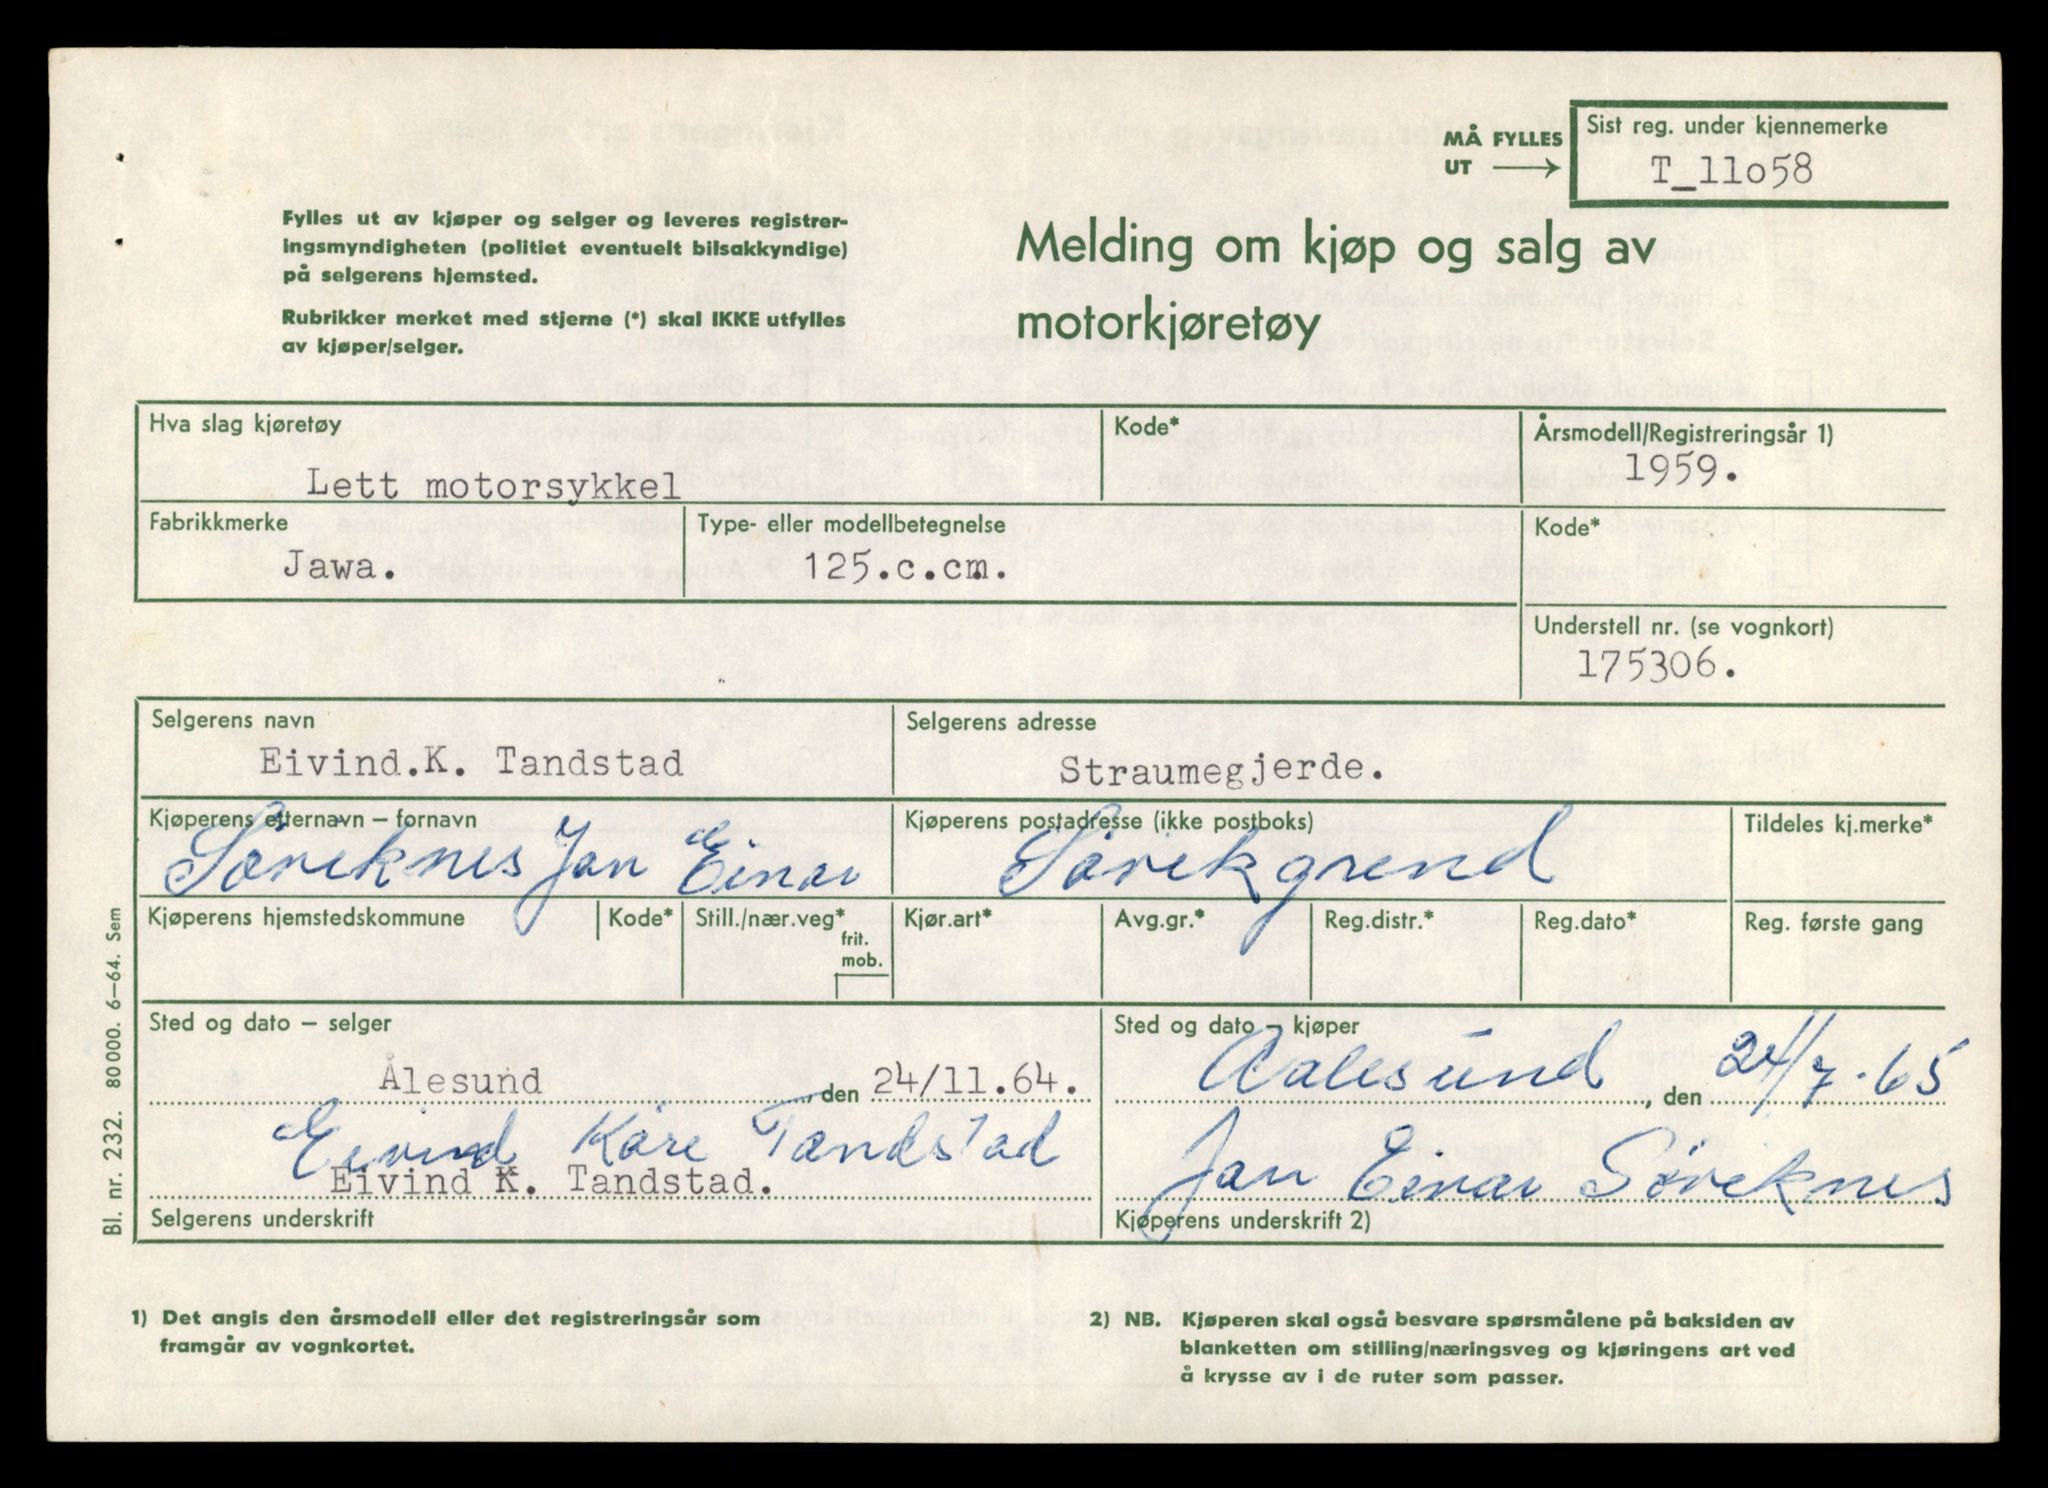 MÅ FYLLES
UT →
Sist reg. under kjennemerke
T_11o58
Fylles ut av kjøper og selger og leveres registrer-
ingsmyndigheten (politiet eventuelt bilsakkyndige)
på selgerens hjemsted.
Rubrikker merket med stjerne (*) skal IKKE utfylles
av kjøper/selger.
Melding om kjøp og salg av
motorkjøretøy
Hva slag kjøretøy
Lett motorsykkel
Kode*
Årsmodell/Registreringsår 1)
1959.
Fabrikkmerke
Jawa.
Type- eller modellbetegnelse
125.c.cm.
Kode*
Understell nr. (se vognkort)
175306.
Selgerens navn
Eivind.K. Tandstad
Selgerens adresse
Straumegjerde.
Kjøperens etternavn – fornavn
Søviknes Jan Einar
Kjøperens postadresse (ikke postboks)
Søvikgrend
Tildeles kj.merke*
Kjøperens hjemstedskommune
Kode*
Still./nær.veg*
frit.
mob.
Kjør.art*
Avg.gr.*
Reg.distr.*
Reg.dato*
Reg. første gang
Sted og dato – selger
Ålesund, den 24/11.64.
Eivind Kåre Tandstad
Eivind K. Tandstad.
Selgerens underskrift
Sted og dato – kjøper
Aalesund, den 24/7.65
Jan Einar Søviknes
Kjøperens underskrift 2)
Bl. nr. 232. 80 000. 6–64. Sem
1) Det angis den årsmodell eller det registreringsår som
framgår av vognkortet.
2) NB. Kjøperen skal også besvare spørsmålene på baksiden av
blanketten om stilling/næringsveg og kjøringens art ved
å krysse av i de ruter som passer.